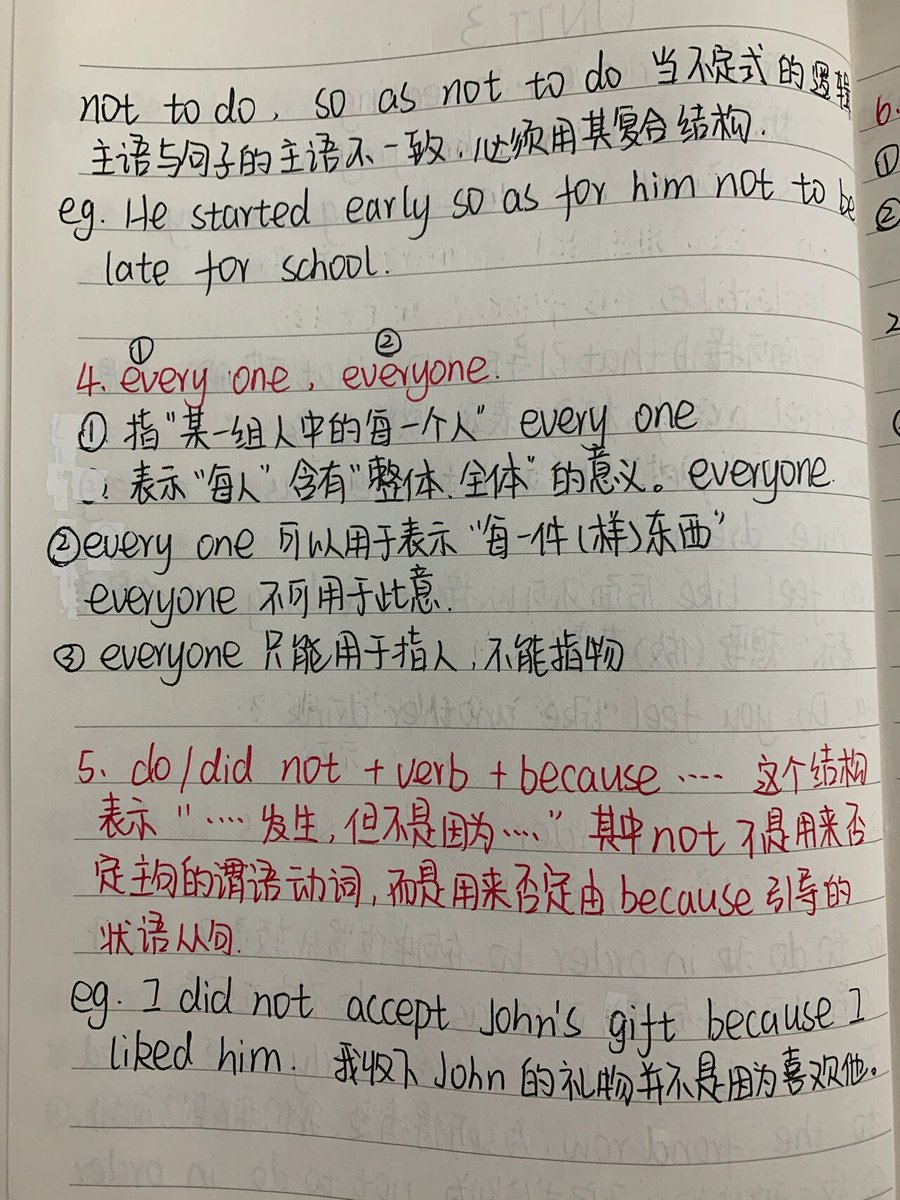 not to do, so as not to do 当不定式的逻辑
主语与句子的主语不一致,必须用其复合结构.
eg. He started early so as for him not to be
late for school.
① ②
4. every one, everyone.
① 指"某一组人中的每一个人" every one
表示"每人" 含有"整体、全体"的意义。everyone.
② every one 可以用于表示"每一件(样)东西"
everyone 不可用于此意.
③ everyone 只能用于指人,不能指物
5、do/did not + verb + because .... 这个结构
表示 "....发生,但不是因为...." 其中not 不是用来否
定主句的谓语动词,而是用来否定由 because 引导的
状语从句.
eg. I did not accept John's gift because I
liked him. 我收下 John 的礼物并不是因为喜欢他。
6.
①
②
2